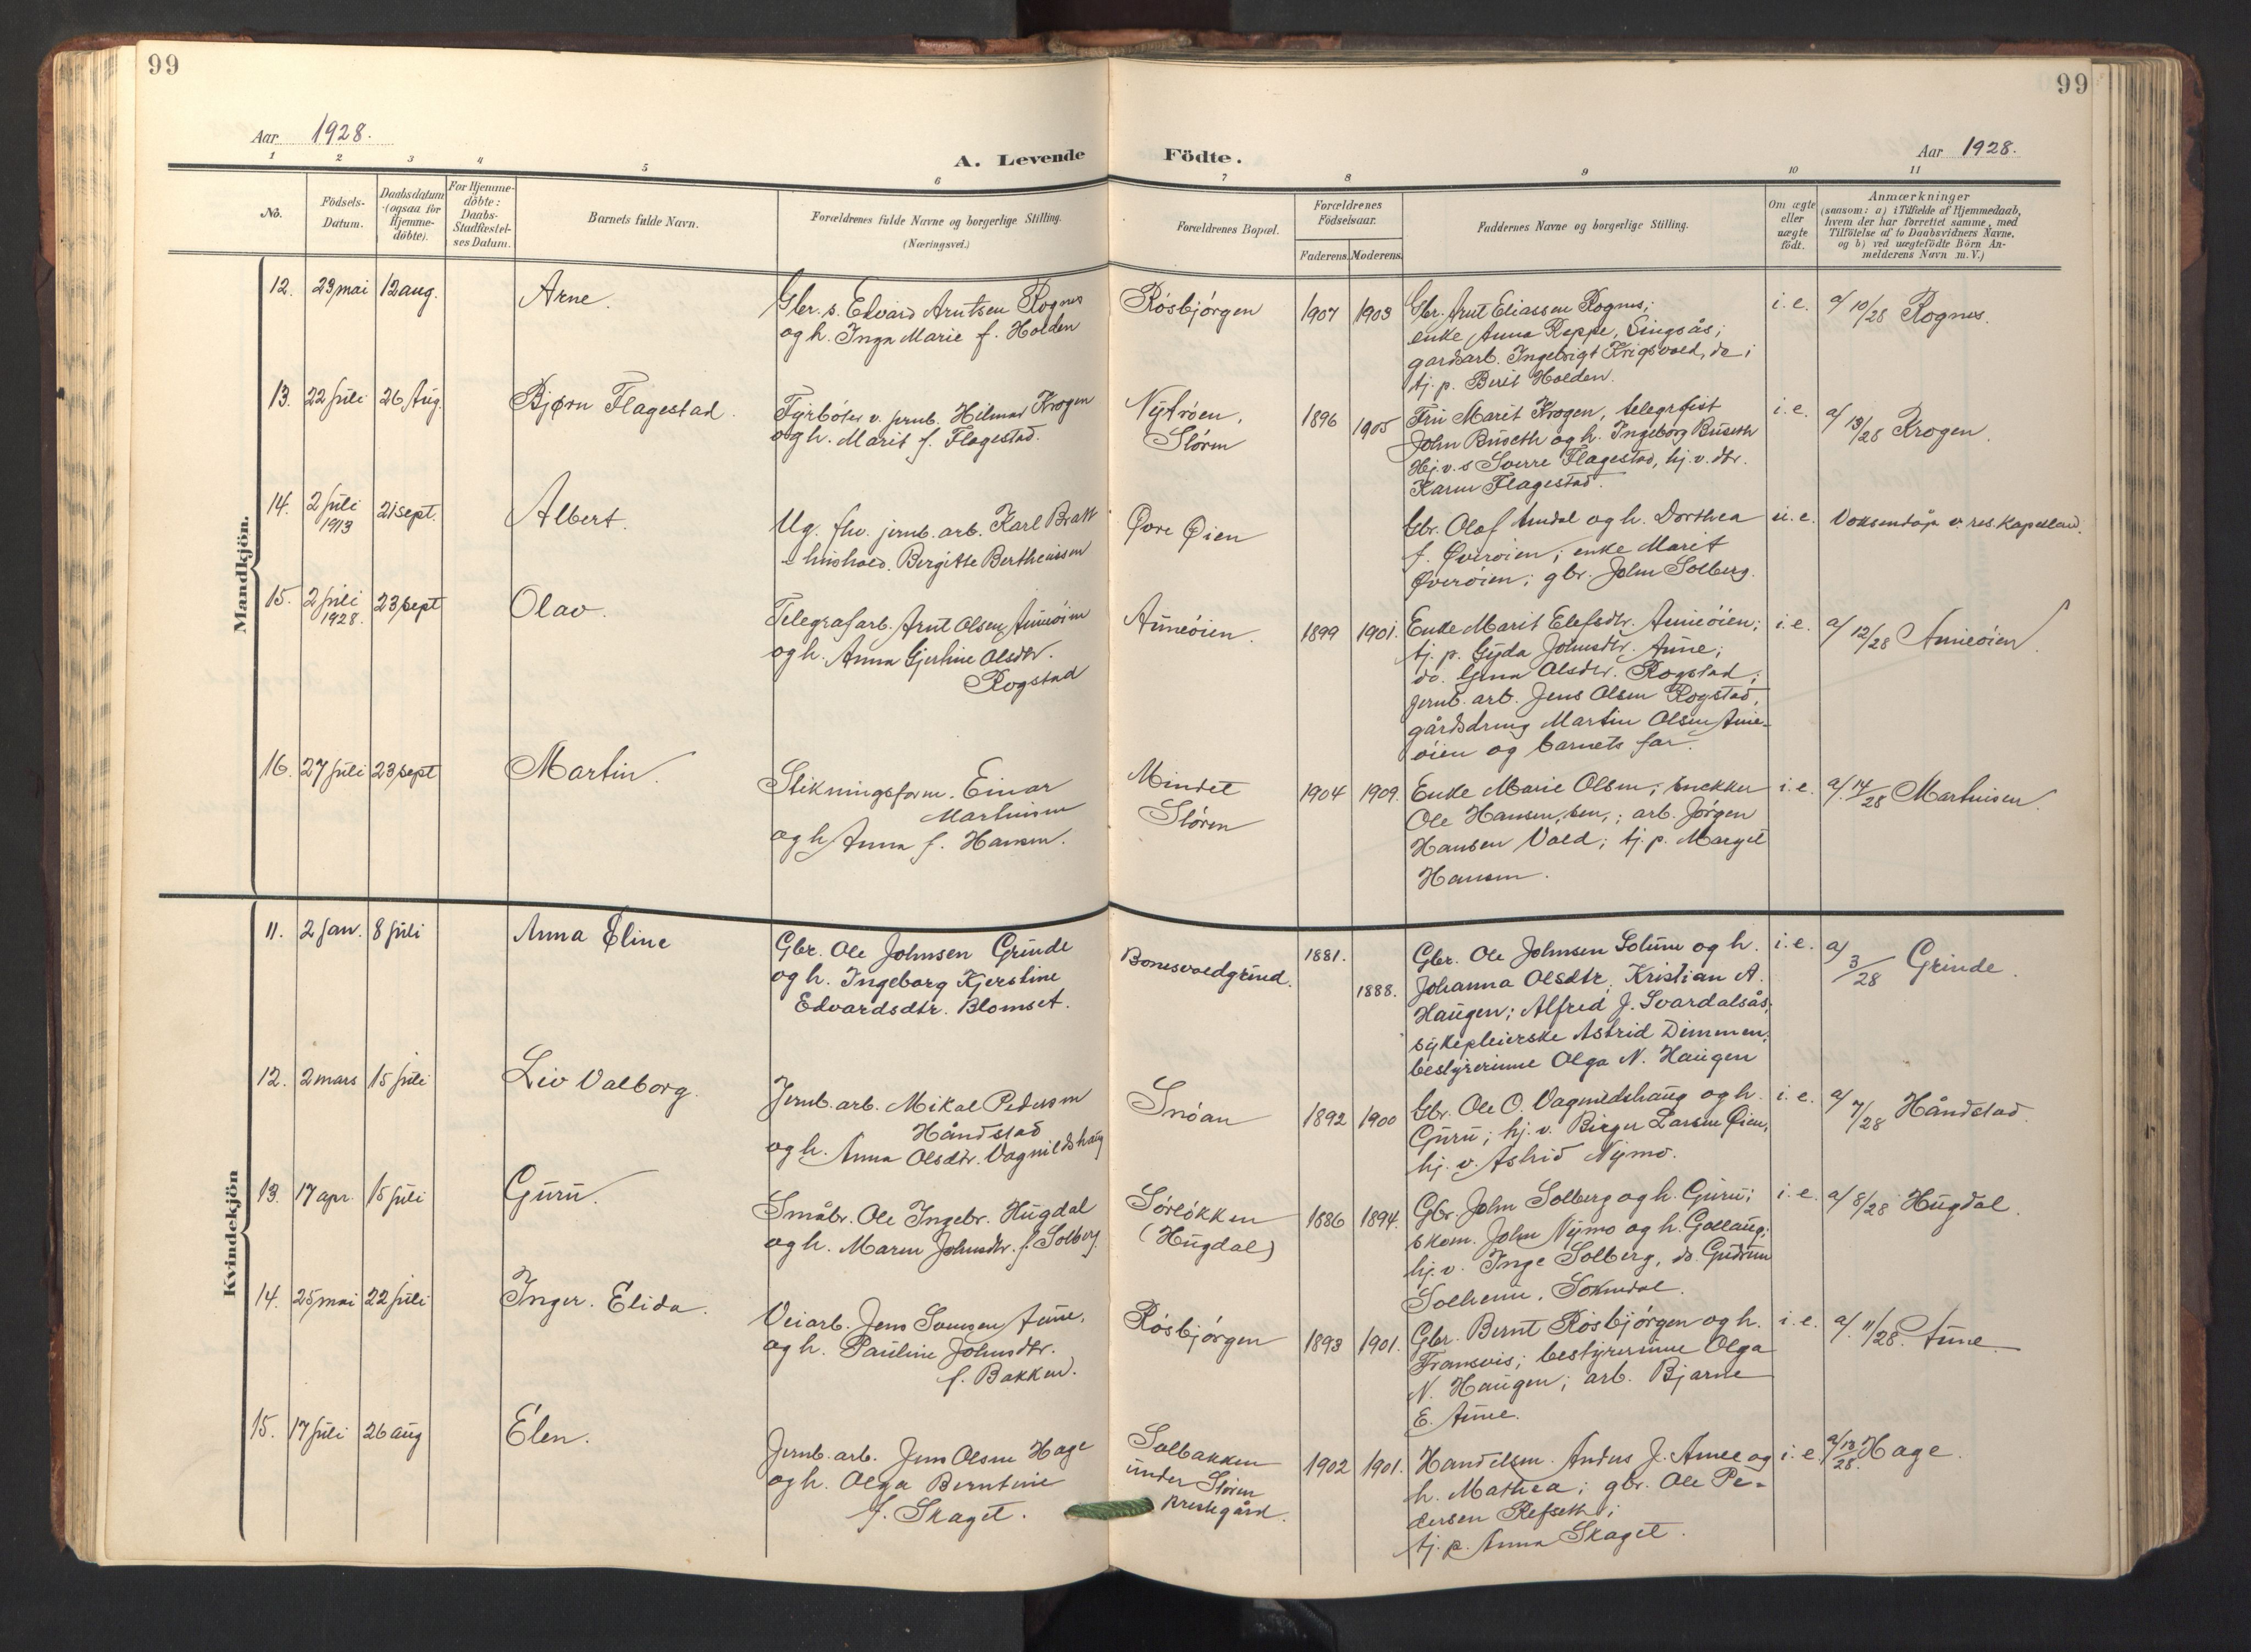 99
99
Aar 1928.
A. Levende Födte.
Aar 1928.
1 2 3 4 5 6 7 8 9 10 11
No.
Födsels-
Datum.
Daabsdatum
(ogsaa for
Hjemme-
döbte).
For Hjemme-
döbte:
Daabs-
Stadfæstel-
ses Datum.
Barnets fulde Navn.
Forældrenes fulde Navne og borgerlige Stilling.
(Næringsvei.)
Forældrenes Bopæl.
Forældrenes
Födselsaar.
Faderens. Moderens.
Faddernes Navne og borgerlige Stilling.
Om ægte
eller
uægte
födt.
Anmærkninger
(saasom: a) i Tilfælde af Hjemmedaab,
hvem der har forrettet samme, med
Tilföielse af to Daabsvidners Navne,
og b) ved uægtefödte Börn An-
melderens Navn m.V.)
Mandkjön.
12. 23 mai 12 aug.
Arne.
Gbr. s. Edvard Arntsen Rognes
og h. Inga Marie f. Holden
Rösbjörgen
1907 1903
Gbr. Arnt Eliassen Rognes;
enke Anna Reppe, Singsås;
gardsarb. Ingebrigt Krigsvold, do;
tj. p. Berit Holden.
i. e.
a/ 10/28 Rognes.
13. 22 juli 26 Aug.
Bjørn Flagestad.
Fyrböter v. jernb. Hilmar Krogen
og h. Marit f. Flagestad.
Nytröen,
Stören
1896 1905
Fru Marit Krogen, telegrafist
John Buseth og h. Ingeborg Buseth
Hj. v. s Sverre Flagestad, hj. v. dtr.
Karen Flagestad.
i. e.
a/ 13/28 Krogen.
14. 2 juli
1913
21 sept.
Albert.
Ug. fhv. jernb. arb. Karl Bratt
hushold. Bergitte Bertheussen
Øvre Øien
Gbr. Olaf Amdal og h. Dorthea
f. Øveröien; enke Marit
Øveröien; gbr. John Solberg.
u. e.
Voksendåp v. res. kapellan.
15. 2 juli
1928.
23 sept
Olav.
Telegrafarb. Arnt Olsen Auneöien
og h. Anna Gjertine Olsdtr.
Rogstad
Auneöien.
1899 1901.
Enke Marit Elefsdtr. Auneöien;
tj. p. Gyda Johnsdtr. Aune;
do. Gina Olsdtr. Rogstad;
jernb. arb. Jens Olsen Rogstad,
gårdsdreng Martin Olsen Aune-
öien og barnets far.
i. e.
a/ 12/28 Auneöien
16. 27 juli 23 sept
Martin.
Stikningsform. Einar
Martinsen
og h. Anna f. Hansen.
Mindet
Stören
1904 1909.
Enke Marie Olsen; snekker
Ole Hansen, sen.; arb. Jörgen
Hansen Vold; tj. p. Margit
Hansen.
i. e.
a/. 14/28 Martinsen.
Kvindekjön
11. 2 jan. 8 juli
Anna Eline
Gbr. Ole Johnsen Grinde
og h. Ingeborg Kjerstine
Edvardsdtr. Blomset.
Bonesvoldgrind.
1881.
1888.
Gbr. Ole Johnsen Solum og h.
Johanna Olsdtr, Kristian A.
Haugen; Alfred J. Svardalsås;
sykepleierske Astrid Dimmen;
bestyrerinne Olga N. Haugen
i. e.
a/ 3/28 Grinde.
12. 2 mars 15 juli
Liv Valborg.
Jernb. arb. Mikal Pedersen
Håndstad
og h. Anna Olsdtr. Vagnildshaug
Snöan
1892 1900
Gbr. Ole O. Vagnildshaug og h.
Guru; hj. v. Birger Larsen Øien,
hj. v. Astrid Nymo.
i. e.
a/ 7/28 Håndstad.
13. 17 apr. 15 juli
Guru.
Småbr. Ole Ingebr. Hugdal
og h. Maren Johnsdtr. f. Solberg.
Sörlökken
(Hugdal)
1886 1894.
Gbr. John Solberg og h. Guru;
skom. John Nymo og h. Gollaug;
hj. v. Inge Solberg, do. Gudrun
Solheim, Soknedal.
i. e.
a/ 8/28 Hugdal.
14. 25 mai 22 juli
Inger. Elida.
Veiarb. Jens Aune,
og h. Pauline Johnsdtr.
f. Bakken.
Rösbjörgen
1893 1901.
Gbr. Bernt Rösbjörgen og h.
Fransvis; bestyrerinne Olga
N. Haugen; arb. Bjarne
E. Aune.
i. e.
a/. 11/28. Aune
15. 17 juli 26 aug
Elen.
Jernb. arb. Jens Olsen Hage
og h. Olga Berntine
f. Skaget.
Solbakken
under Stören
Prestegård.
1902 1901.
Handelsm. Anders J. Aune og
h. Mathea; gbr. Ole Pe-
dersen Refseth;
tj. p. Anna Skaget.
i. e.
a/ 13/28. Hage.